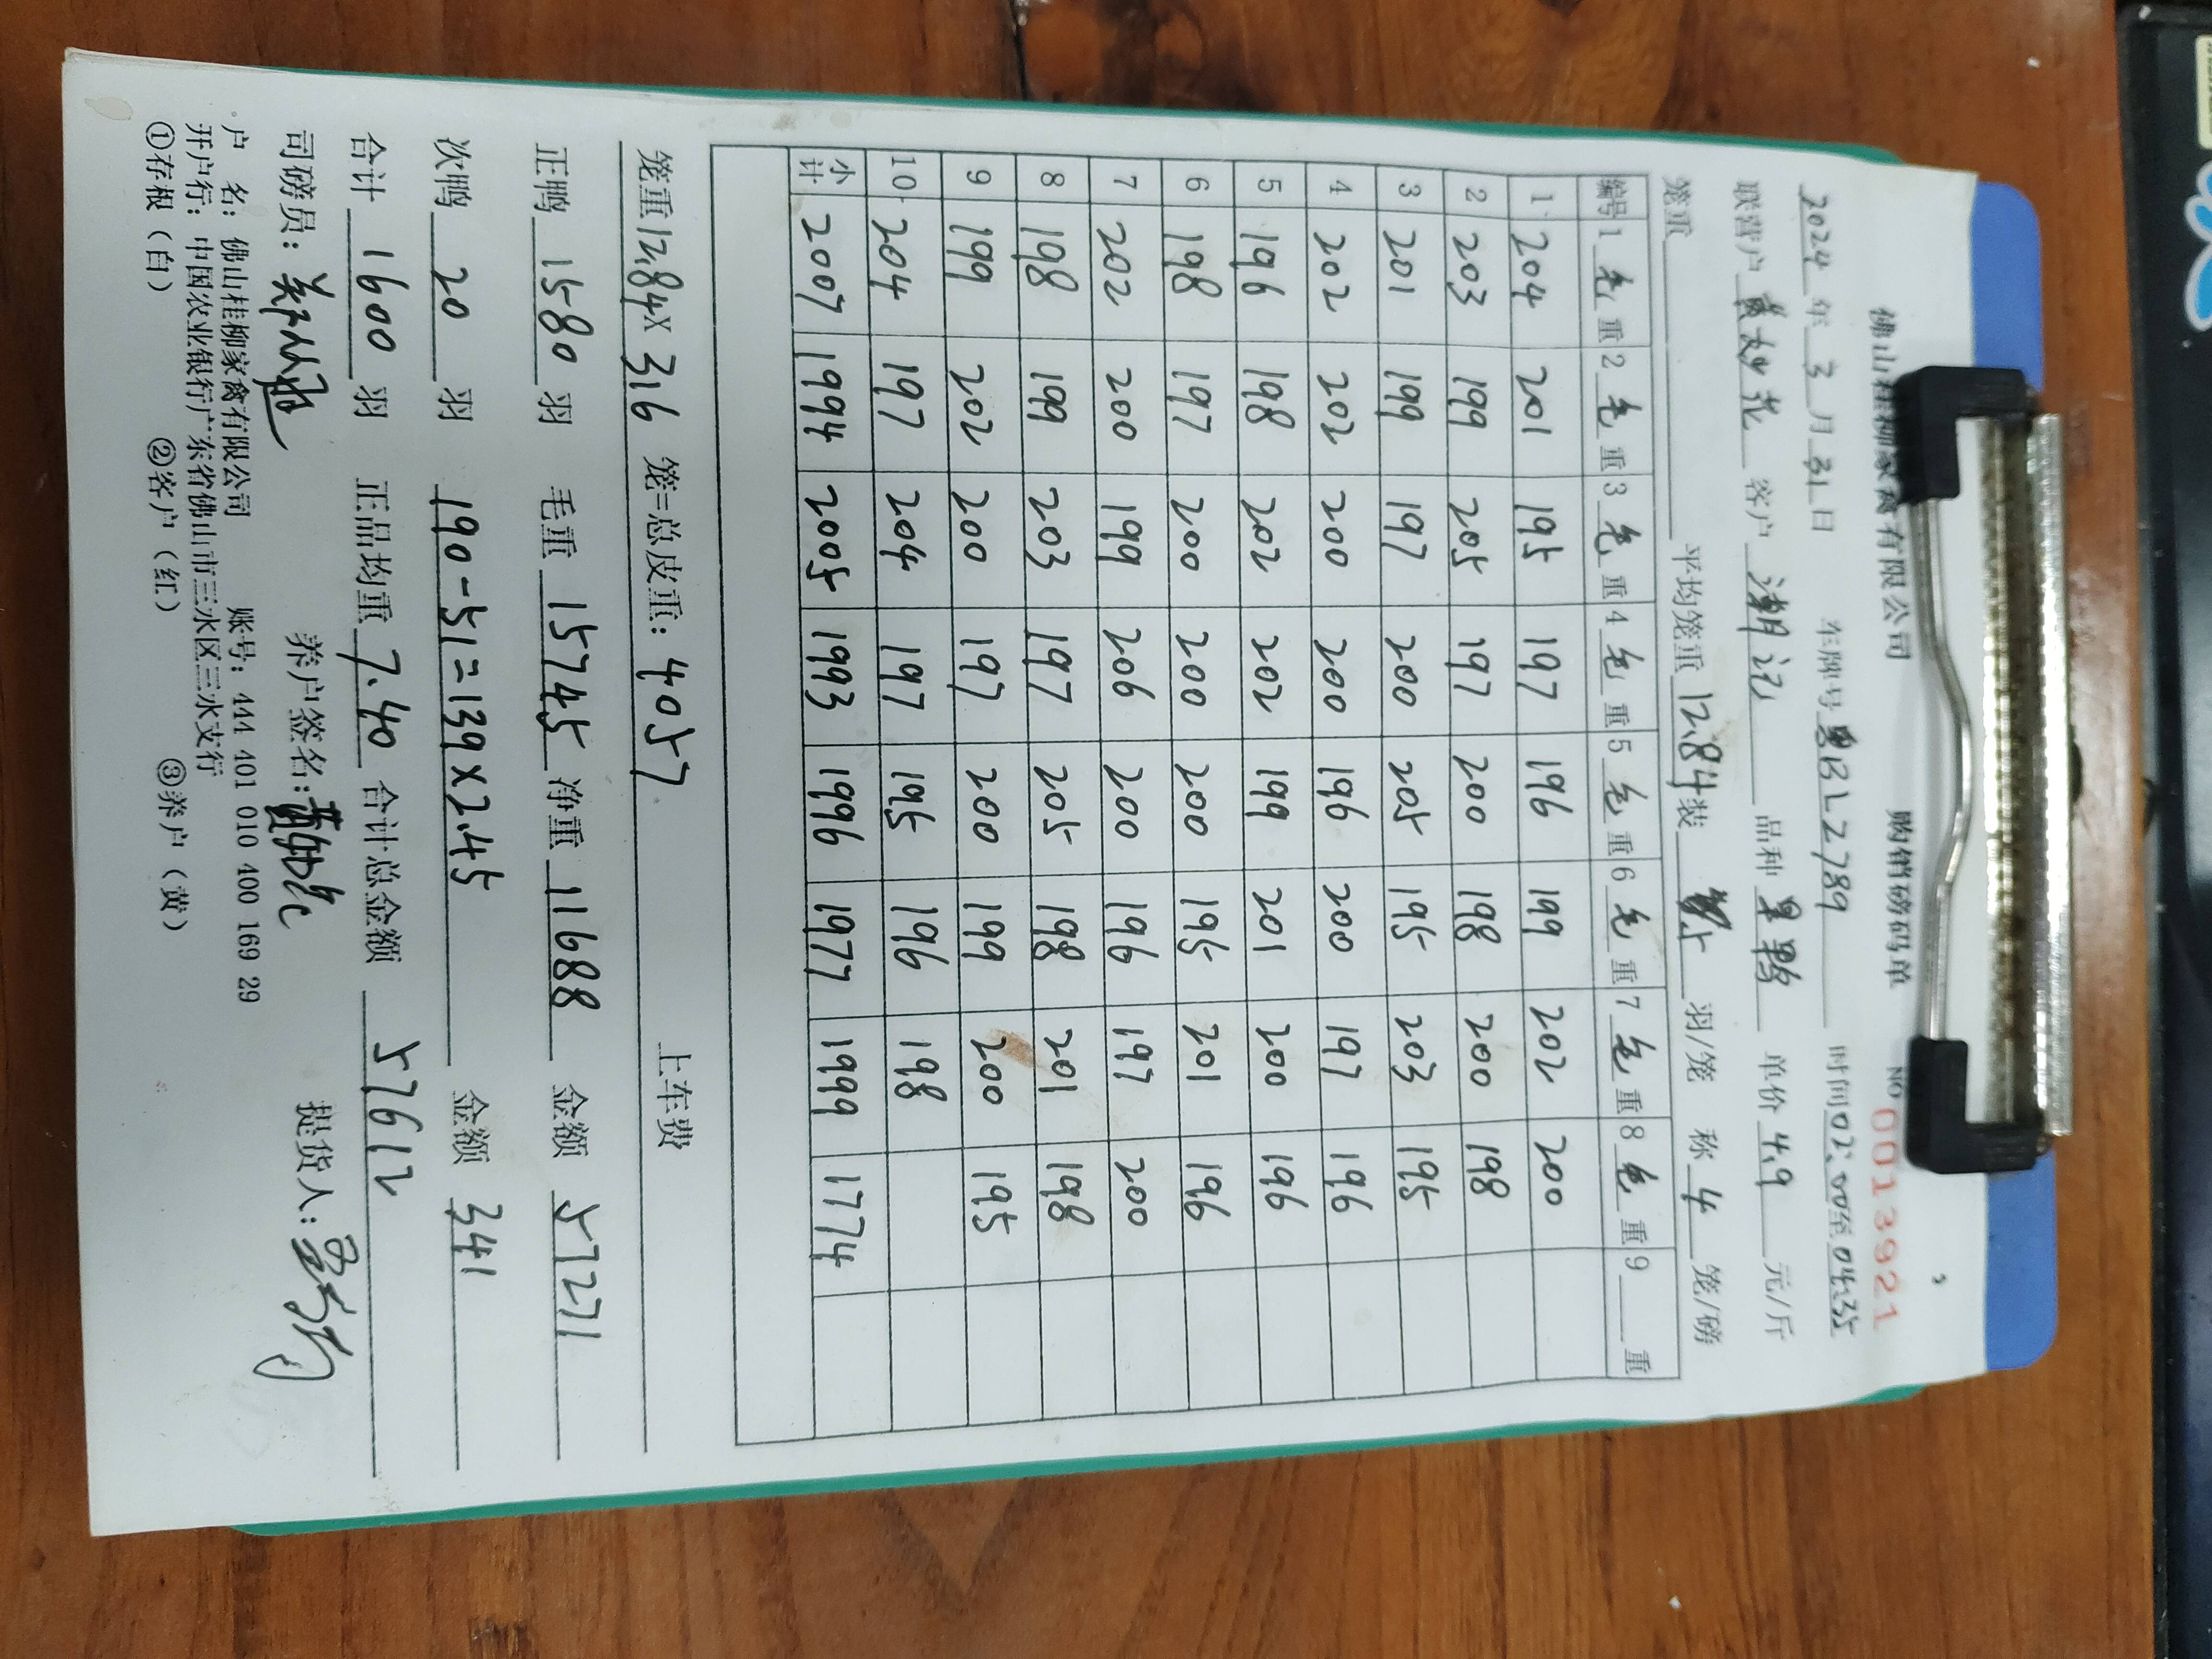 佛山桂柳家禽有限公司 购销磅码单 NO 0013921
2024年3月31日 车牌号粤BLZ789 时间02:00至04:35
联营户 黄妙花 客户 潮记 品种 单价 4.9 元/斤
笼重 平均笼重12.84装 5 羽/笼 称 4 笼/磅
编号 1 毛重 2 毛重 3 毛重 4 毛重 5 毛重 6 毛重 7 毛重 8 毛重 9 重
1 204 201 195 197 196 199 202 200
2 203 199 205 197 200 198 200 198
3 201 199 197 200 205 195 203 195
4 202 202 200 200 196 200 197 196
5 196 198 202 202 199 201 200 196
6 198 197 200 200 200 195 201 196
7 202 200 199 206 200 196 197 200
8 198 199 203 197 205 198 201 198
9 199 202 200 197 200 199 200 195
10 204 197 204 197 195 196 198
小计 2007 1994 2005 1993 1996 1977 1999 1774
笼重12.84× 316 笼=总皮重: 4057 上车费
正鸭 1580 羽 毛重 15745 净重 11688 金额 57271
次鸭 20 羽 190-51=139×2.45 金额 341
合计 1600 羽 正品均重 7.40 合计总金额 57612
司磅员: 养户签名: 黄妙花 提货人:
户 名: 佛山桂柳家禽有限公司 账号: 444 401 010 400 169 29
开户行: 中国农业银行广东省佛山市三水区三水支行
①存根(白) ②客户(红) ③养户(黄)